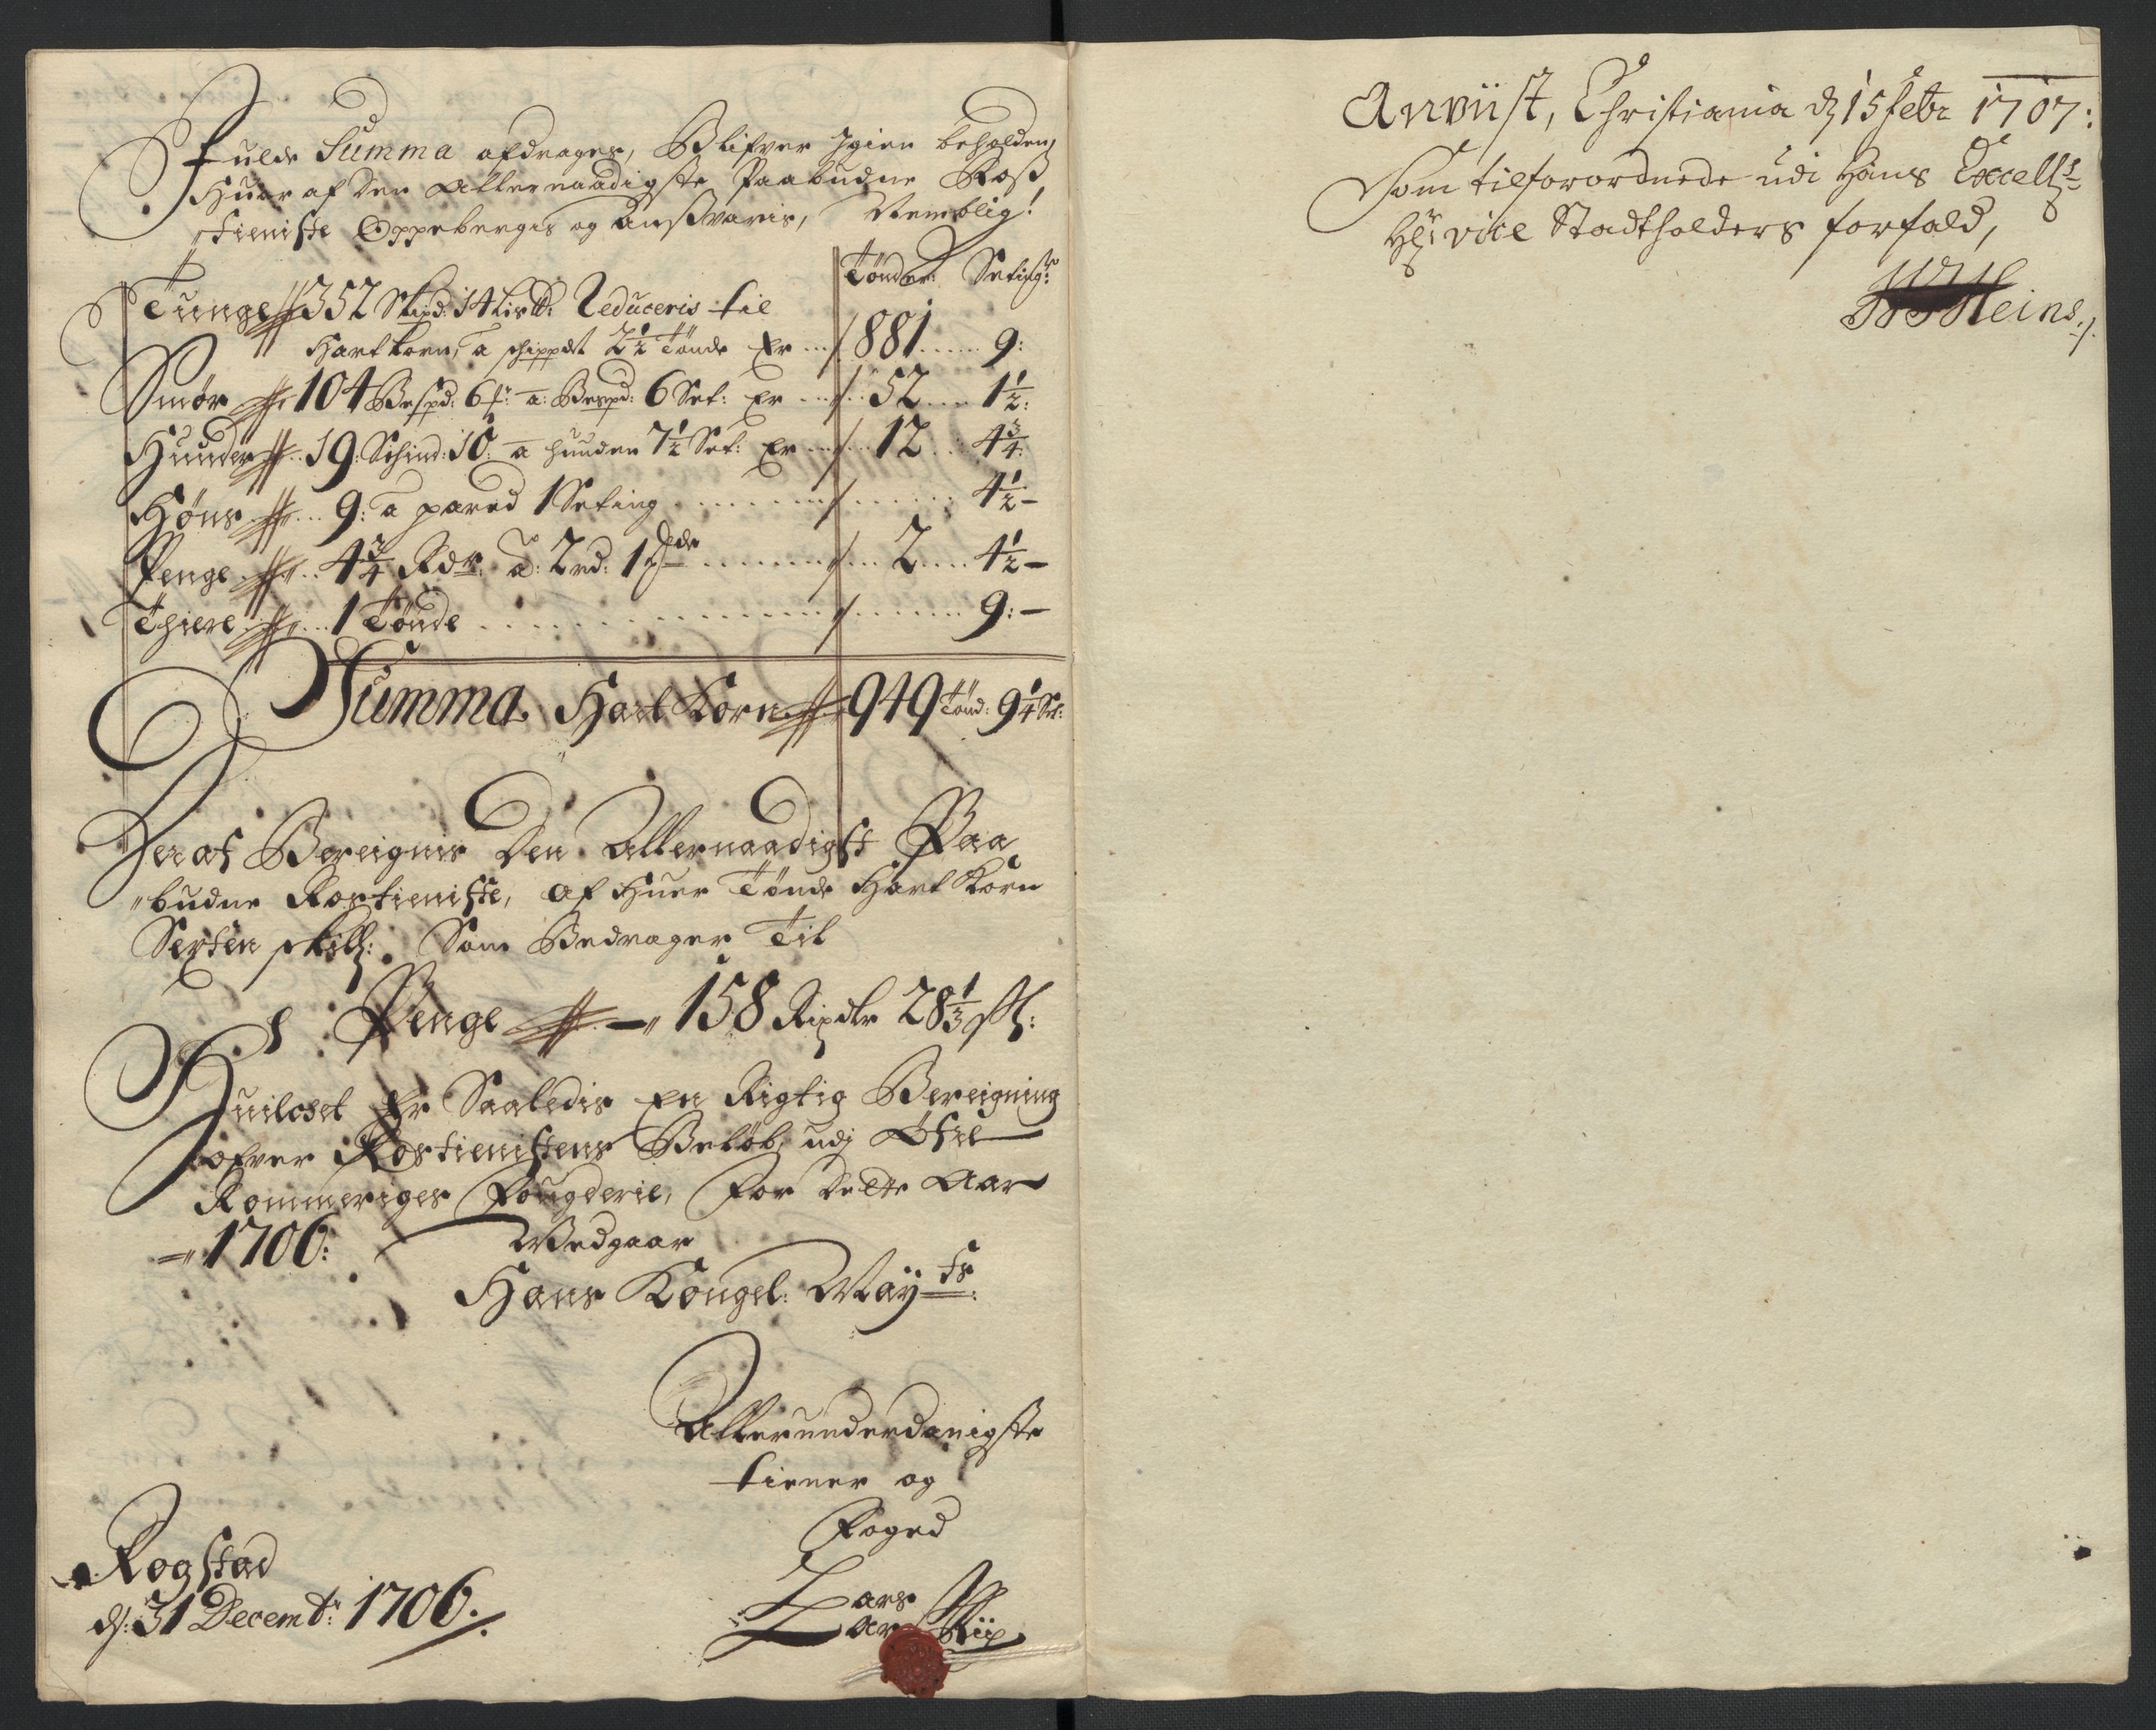 fulde Summa afdrages, Blifver Igien beholden,
Huor af den Allernaadigste Paabudne Roß
tieniste Oppebergis og Ansvaris, Nemblig!
Tønder: Seting:
Tunge 352 Skipd: 14 Lis℔: Reduceris til
Hartkorn, a schippdt 2½ Tønde Er 881 9:
Smør 104 Bespd: 6 f: a: Bespd: 6 Set: Er 52 1½:
Huuder 19: Schind: 10: a huuden 7½ Set: Er 12 4¾:
Høns 9: a pared 1 Seting 4½ -
Penge 4¾ Rdr: a: 2 rd: 1 Tde 2 4½ -
Thiere 1 Tønde 9: -
Summa Hart Korn 949 Tønd: 9¼ Set:
Deraf Beregnis den Allernaadigst Paa
budne Rostieniste, af Huer Tønde Hart Korn
Sexten skill: Som Bedrager Til
Penge 158 Rixdlr 28⅓ sk:
Huilcket Er Saaledis En Rigtig Bereigning
ofver Rostienistens Beløb, udj Øfre
Rommeriges Fougderie, for dette Aar
1706: Vedgaar
Hans Kongel: Mayts:
Allerunderdanigste
tiener og
Foged
Rogstad
d: 31 Decembr: 1706.
Lars
Riis
Anviist, Christiania d 15 Febr 1707:
Som tilforordnede udi Hans Excell:
Hr: vice Stadtholders forfald,